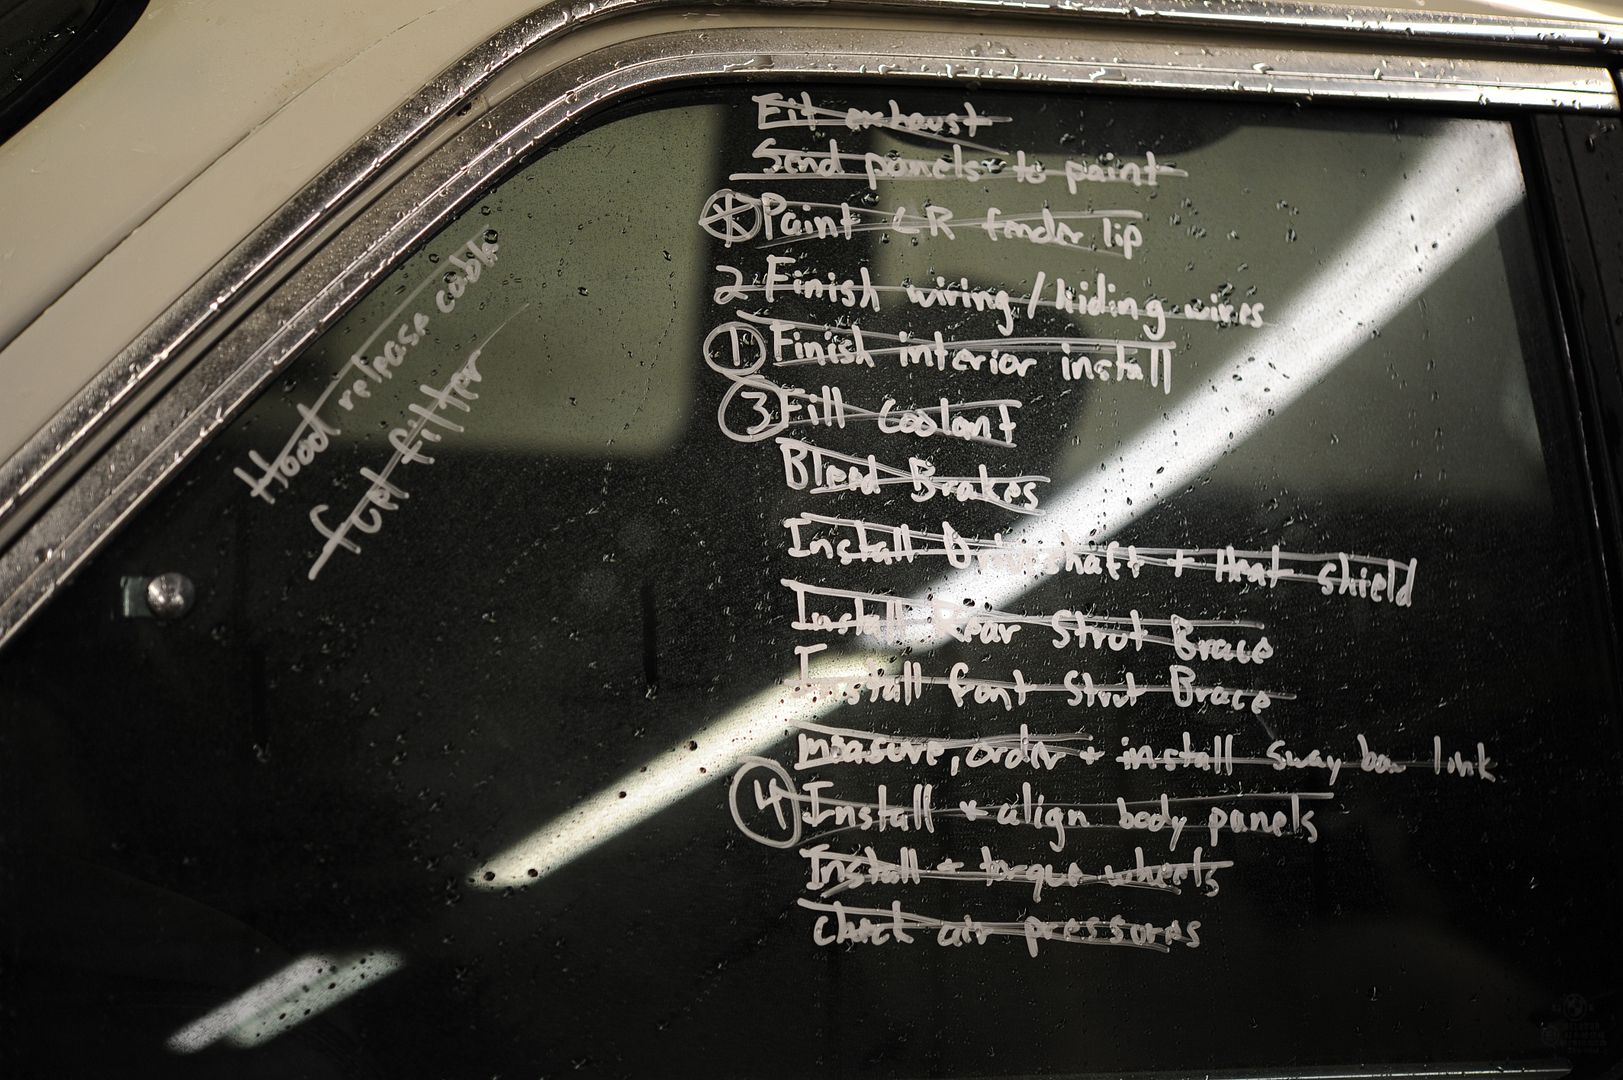 Fit exhaust
Send panels to paint
Paint LR fender lip
2 Finish wiring / hiding wires
1 Finish interior install
3 Fill coolant
Bleed Brakes
Install Driveshaft + Heat shield
Install Rear Strut Brace
Install font Strut Brace
measure, order + install Sway bar link
4 Install + align body panels
Install + torque wheels
check air pressures
Hood release cable
fuel filter